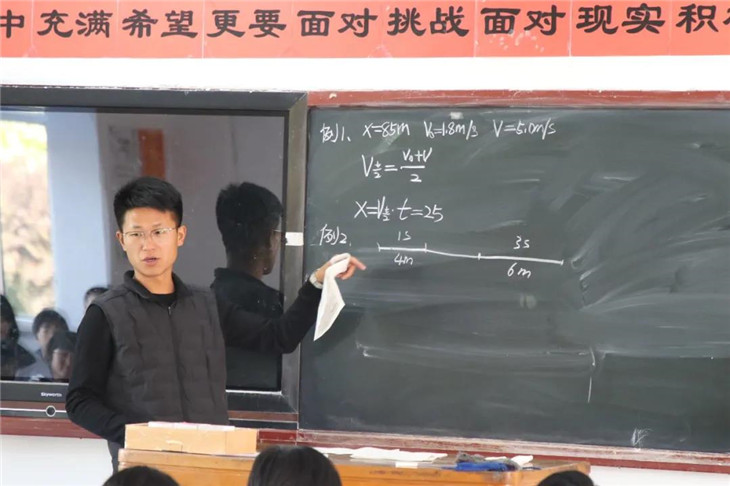 中充满希望更要面对挑战面对现实积
例1、 X=85m V₀=1.8m/s V=5.0m/s
V_{t/2}=\frac{V₀+V}{2}
X=V_{t/2}·t=25
例2、
1s 3s
4m 6m
Skyworth